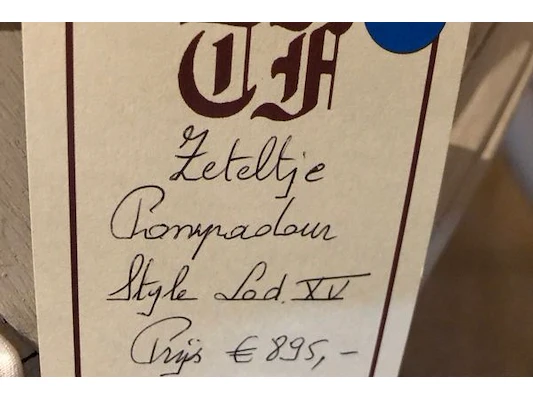 Zeteltje
Pompadour
Style Lod. XV
Prijs € 895,-